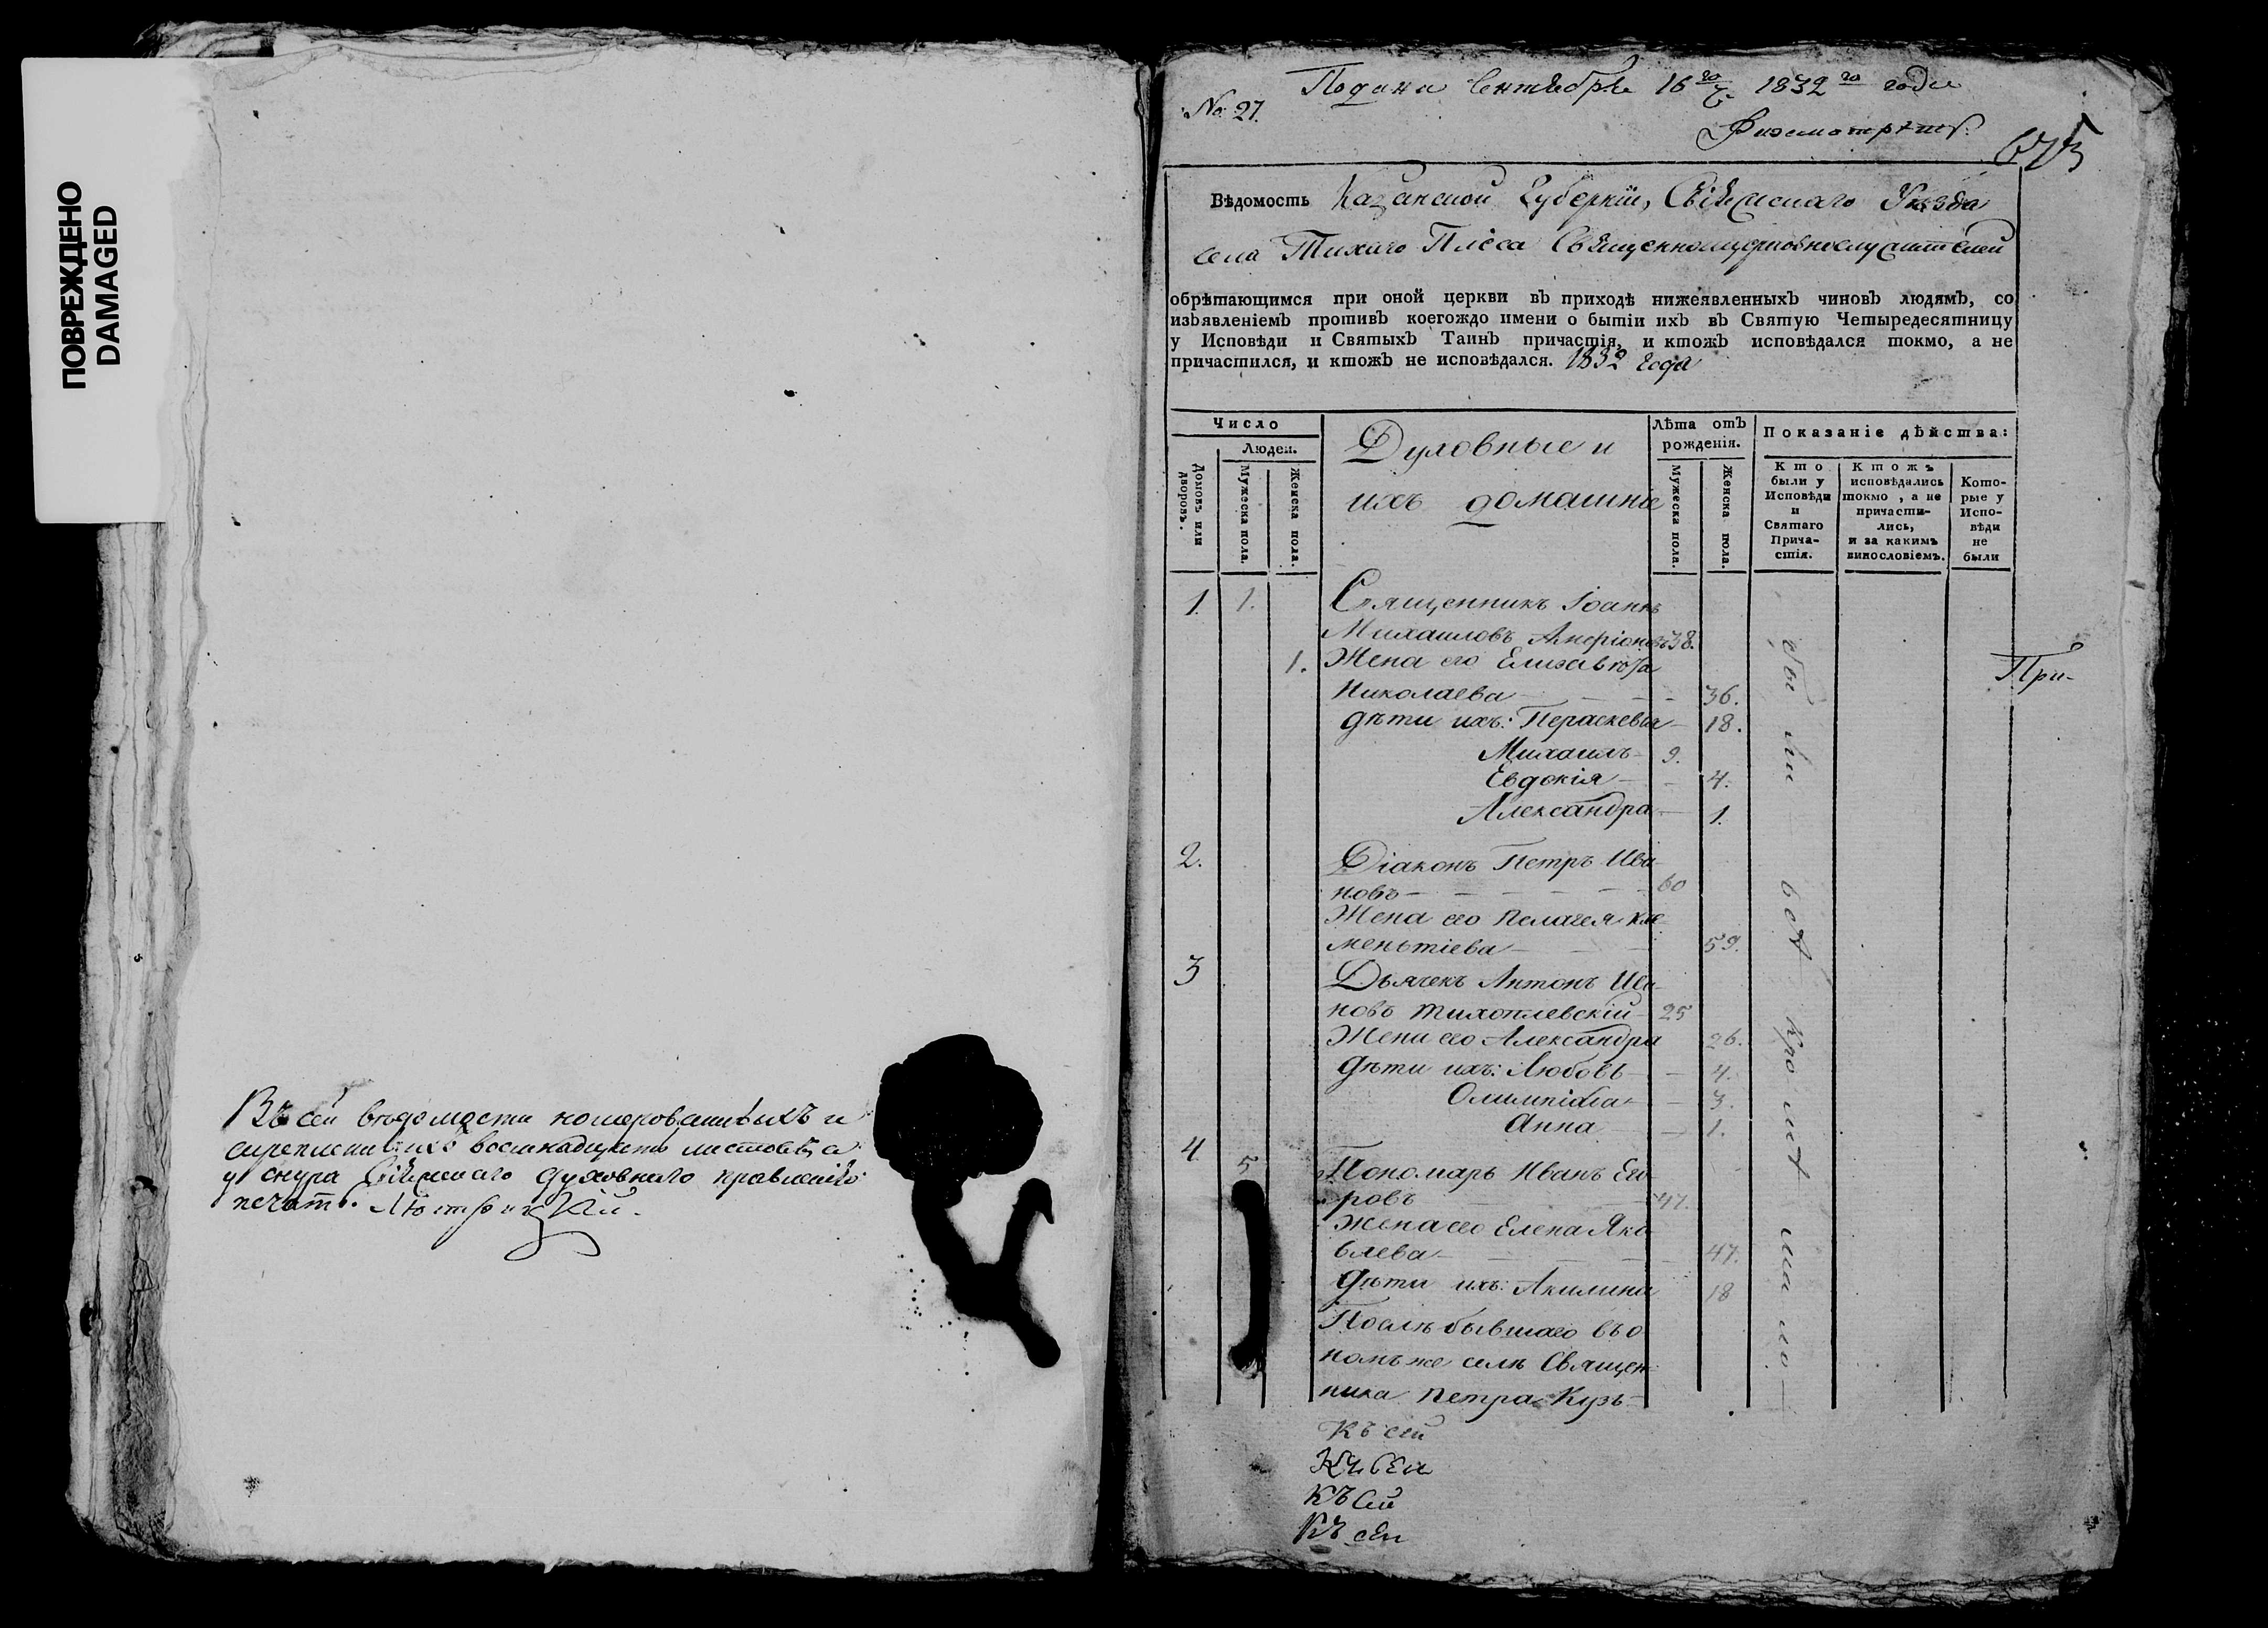 ПОВРЕЖДЕНО
DAMAGED
Въ сей ведомости номерованныхъ и
скрепленныхъ восемнадцать листовъ, а
у снура Свіяжскаго духовнаго правленія
печать.
Подана Сентября 16го 1832го года
No. 27.
675
Вѣдомость Казанской Губерніи, Свіяжскаго Уѣзда
села Тихаго Плеса Священноцерковнослужителей
обрѣтающимся при оной церкви въ приходѣ нижеявленныхъ чиновъ людямъ, со
изъявленіемъ противъ коегождо имени о бытіи ихъ въ Святую Четыредесятницу
у Исповѣди и Святыхъ Таинъ причастія, и ктожъ исповѣдался токмо, а не
причастился, и ктожъ не исповѣдался. 1832 года
Число
Людей.
Домовъ или дворовъ.
Мужеска пола.
Женска пола.
Духовные и
ихъ домашніе
Лѣта отъ
рожденія.
Мужеска пола.
Женска пола.
Показаніе дѣйства:
Кто
были у
Исповѣди
и
Святаго
Прича-
стія.
Ктожъ
исповѣдались
токмо, а не
причасти-
лись,
и за какимъ
винословіемъ.
Кото-
рые у
Испо-
вѣди
не
были
1. 1. Священникъ Іоаннъ
Михаиловъ 38.
1. Жена его Елизавета
Николаева 36.
дѣти ихъ: Параскевія 18.
Михаилъ 9.
Евдокія 4.
Александра 1.
При-
2. Діаконъ Петръ Ива
новъ 60
Жена его Пелагея Кле
ментіева 59.
3 Дьячекъ Антонъ Ива
новъ Тихоплевскій 25
Жена его Александра 26.
дѣти ихъ: Любовь 4.
Олимпіада 3.
Анна 1.
4 5 Пономарь Иванъ Его
ровъ 47.
Жена его Елена Яко
влева 47.
дѣти ихъ: Акилина 18
Послѣ бывшаго въ о
номъ же селѣ Священ
ника Петра Кузь
были
всѣ кро мѣ ма ло
Къ сей
Къ сей
Къ сей
Къ сей